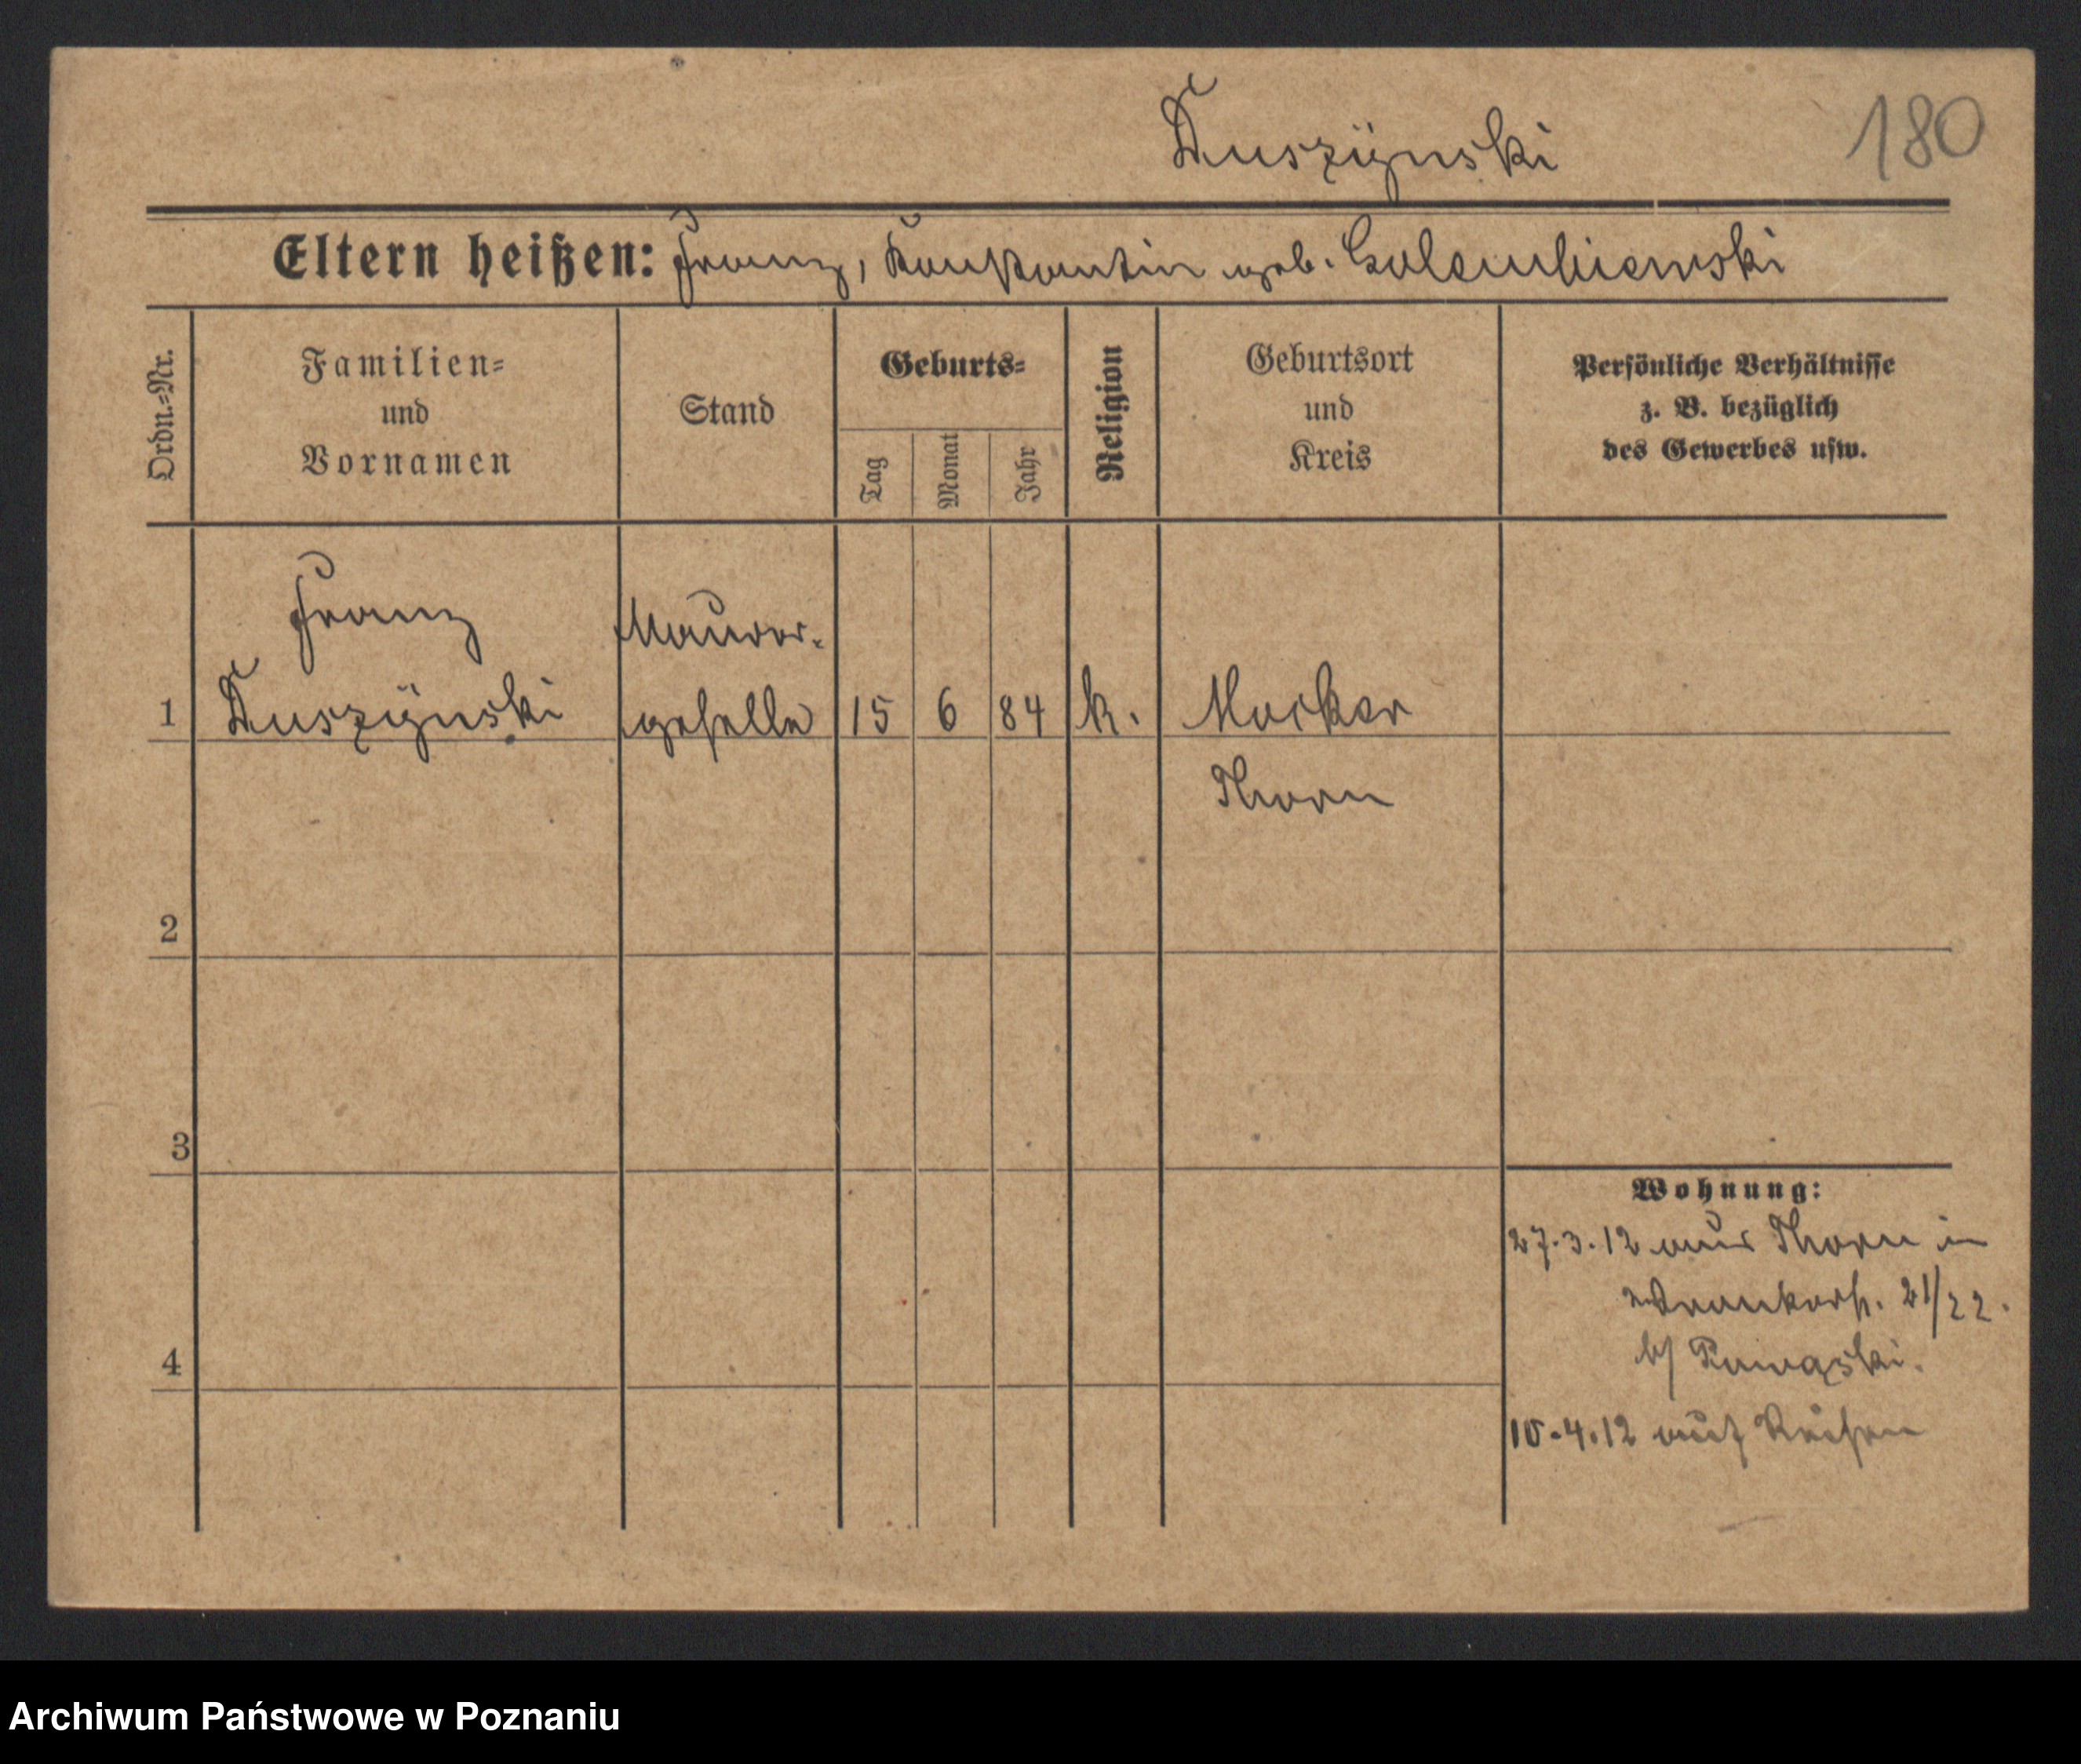 Duszÿnski
180
Eltern heißen: Franz, Konstantin geb. Golembiewski
Ordn.-Nr.
Familien-
und
Vornamen
Stand
Geburts-
Tag
Monat
Jahr
Religion
Geburtsort
und
Kreis
Persönliche Verhältnisse
z. B. bezüglich
des Gewerbes usw.
Franz
Maurer-
1 Duszÿnski geselle 15 6 84 k. Mocker
Thorn
2
3
Wohnung:
27.3.12 aus Thorn in
21/22.
b/
4
10.4.12 auf Reisen
Archiwum Państwowe w Poznaniu